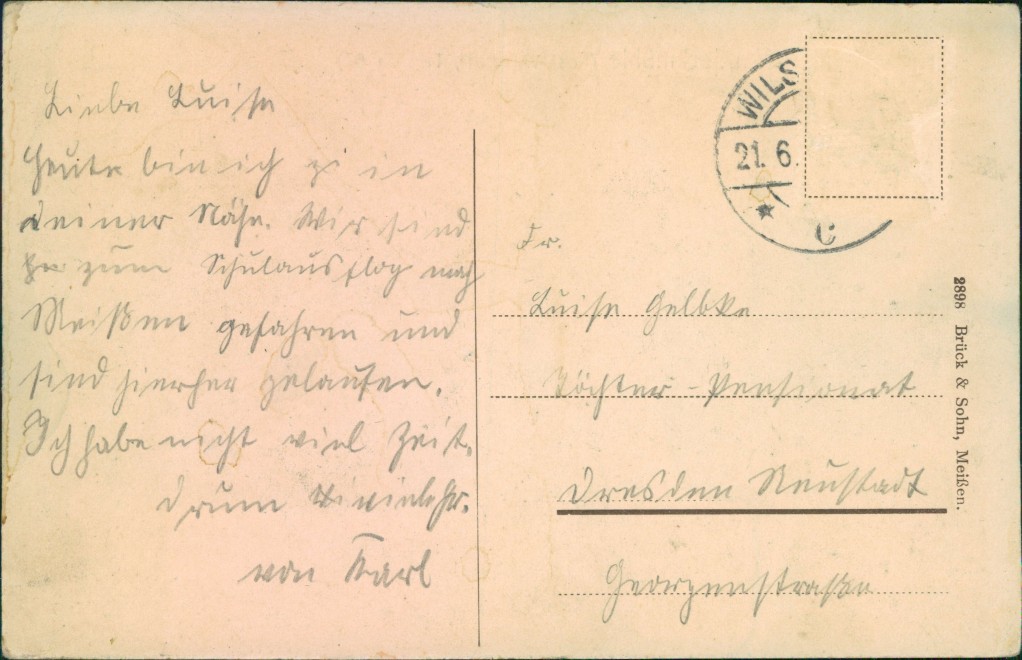 Liebe Luise
Heute bin ich in
deiner Nähe. Wir sind
zum Schulausflog nach
Meißen gefahren und
sind hierher gelaufen.
Ich habe nicht viel Zeit.
drum
von Karl
WILS
21. 6.
* C
Fr.
Luise Gelbke
Töchter-Pensionat
Dresden Neustadt
Georgenstraße
2898 Brück & Sohn, Meißen.